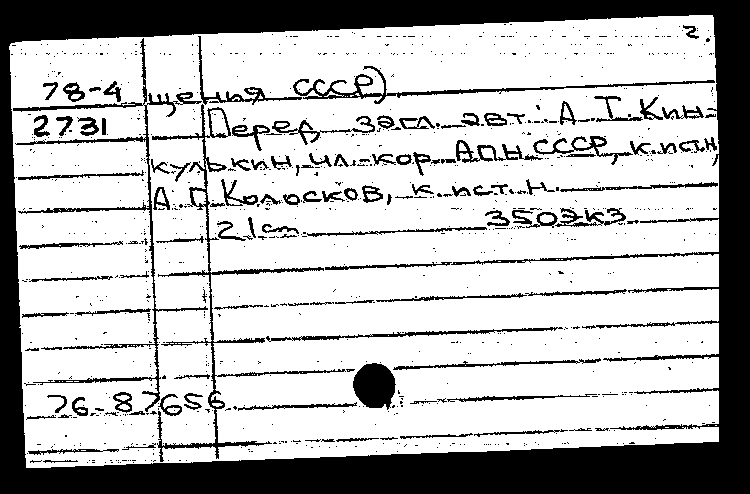 2.
78-4 щения СССР)
2731 Перед загл. авт.: А. Т. Кин-
кулькин, чл.-кор. АПН СССР, к.ист.н,
А. Г. Колосков, к. ист. н.
21cm 350экз
76-87656